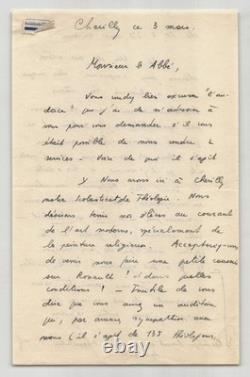 Chevilly ce 3 mars.
Monsieur l'Abbé,
Vous voudrez bien excuser l'au-
dace que j'ai de m'adresser à
vous pour vous demander s'il vous
était possible de nous rendre 1
service. Voici de quoi il s'agit
Nous avons ici à Chevilly
notre scolasticat de Théologie. Nous
désirons tenir nos élèves au courant
de l'art moderne, spécialement de
la peinture religieuse. Accepteriez-vous
de venir nous faire une petite causerie
sur Rouault ? et dans quelles
conditions ? - Inutile de vous
dire que vous aurez un auditoire
qui, par avance sympathise avec
vous (il s'agit de 135 théologiens
ebay